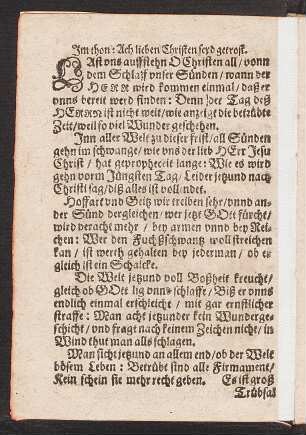 Im thon: Ach lieben Christen seyd getrost.
LAst vns auffstehn O Christen all / vonn
dem Schlaff vnser Sünden / wann der
HERR wird kommen einmal / daß er
vnns bereit werd finden: Denn der Tag deß
HERRN ist nicht weit / wie anzeigt die betrübte
Zeit / weil so viel Wunder geschehen.
Inn aller Welt zu dieser frist / all Sünden
gehn im schwange / wie vns der lieb HErr Jesu
Christ / hat gepropheceit lange: Wie es wird
gehn vorm Jüngsten Tag / Leider jetzund nach
Christi sag / diß alles ist vollendet.
Hoffart vnd Geitz wir treiben sehr / vnnd an-
der Sünd dergleichen / wer jetzt GOtt fürcht /
wird veracht mehr / bey armen vnnd bey Rei-
chen: Wer den Fuchßschwantz woll streichen
kan / ist werth gehalten bey jederman / ob er
gleich ist ein Schalcke.
Die Welt jetzund voll Boßheit kreucht /
gleich ob GOtt lig vnnd schlaffe / Biß er vnns
endlich einmal erschleicht / mit gar ernstlicher
straffe: Man acht jetzunder kein Wunderge-
schicht / vnd fragt nach keinem Zeichen nicht / in
Wind thut man alls schlagen.
Man sicht jetzund an allem end / ob der Welt
bösem Leben: Betrübt sind alle Firmament /
Kein schein sie mehr recht geben. Es ist groß
Trübsal